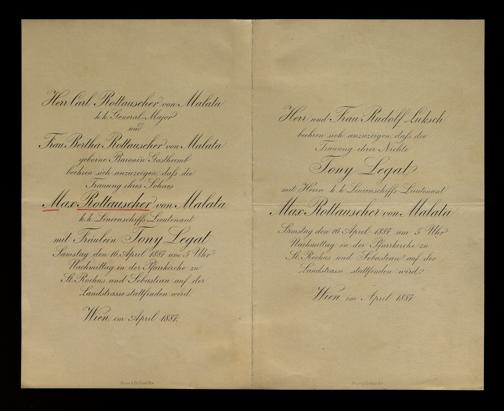 Herr Carl Rottauscher von Malata
k. k. General-Major
und
Frau Bertha Rottauscher von Malata
geborne Baronin
beehren sich anzuzeigen, daß die
Trauung ihres Sohnes
Max Rottauscher von Malata
k. k. Linienschiffs-Lieutenant
mit Fräulein Tony Legat
Samstag den 16. April 1887 um 5 Uhr
Nachmittag in der Pfarrkirche zu
St. Rochus und Sebastian auf der
Landstrasse stattfinden wird.
Wien im April 1887.
Herr und Frau Rudolf Luksch
beehren sich anzuzeigen, daß die
Trauung ihrer Nichte
Tony Legat
mit Herrn k. k. Linienschiffs-Lieutenant
Max Rottauscher von Malata
Samstag den 16. April 1887 um 5 Uhr
Nachmittag in der Pfarrkirche zu
St. Rochus und Sebastian auf der
Landstrasse stattfinden wird.
Wien im April 1887.